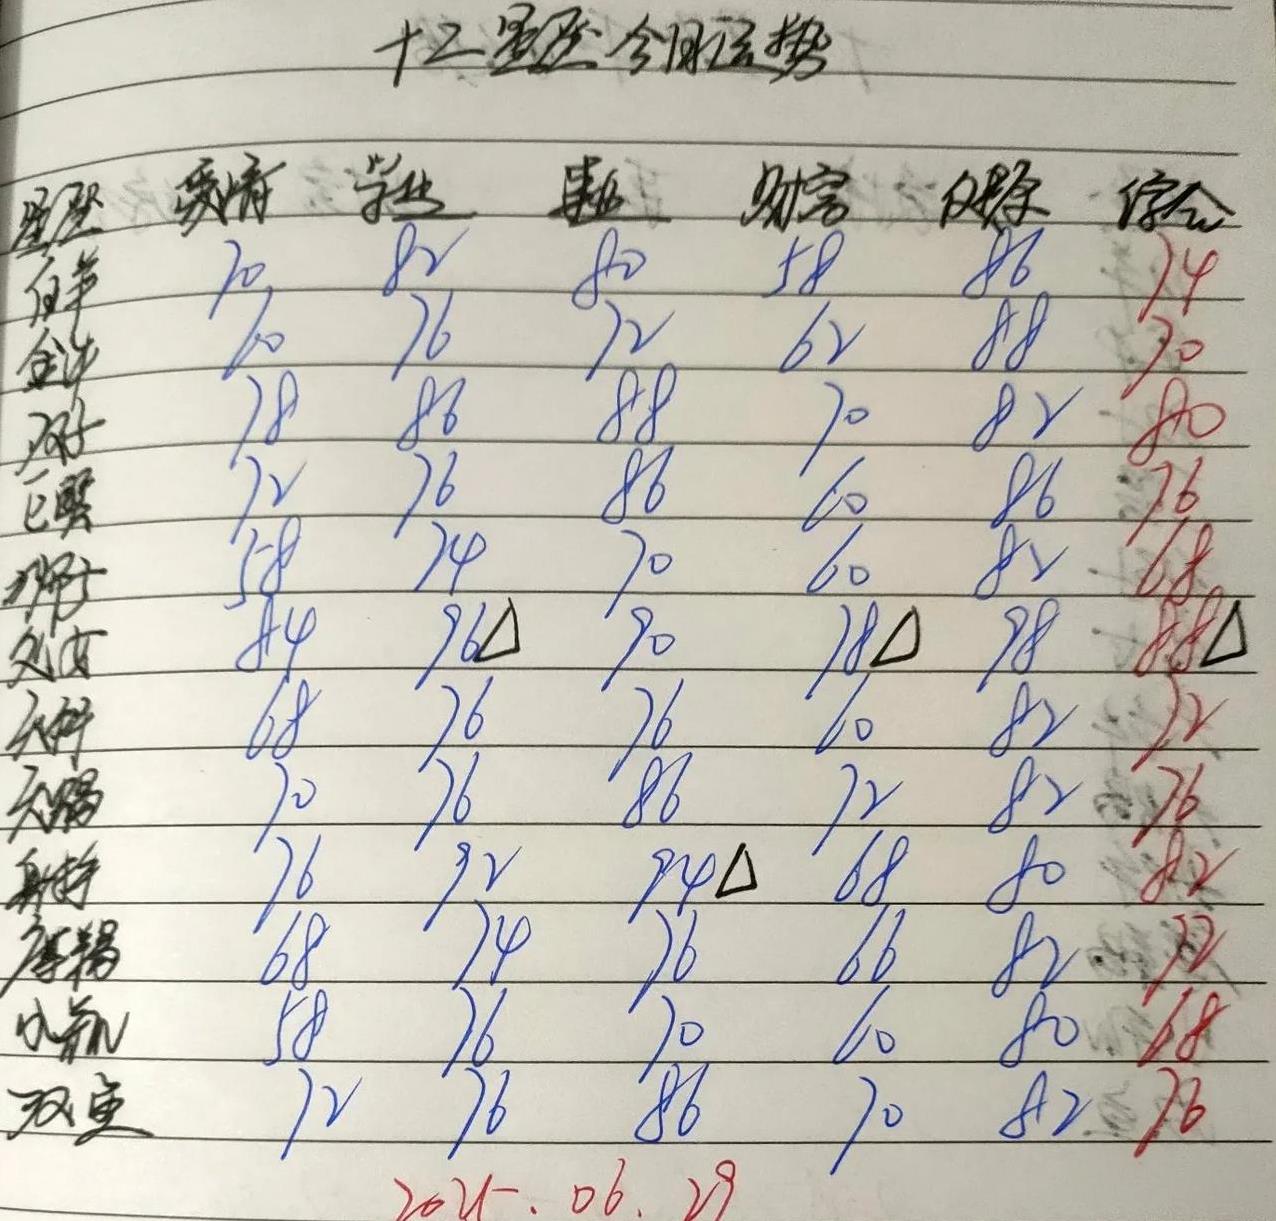 十二星座今日运势
星座 爱情 学业 事业 财富 健康 综合
白羊 70 82 80 58 86 74
金牛 60 76 72 62 88 70
双子 78 86 88 70 82 80
巨蟹 72 76 86 60 86 76
狮子 58 74 70 60 82 68
处女 84 96△ 90 78△ 98 88△
天秤 68 76 76 60 82 72
天蝎 70 76 86 72 82 76
射手 76 92 94△ 68 80 82
摩羯 68 74 76 66 82 72
水瓶 58 76 70 60 80 68
双鱼 72 76 86 70 82 76
2025.06.29